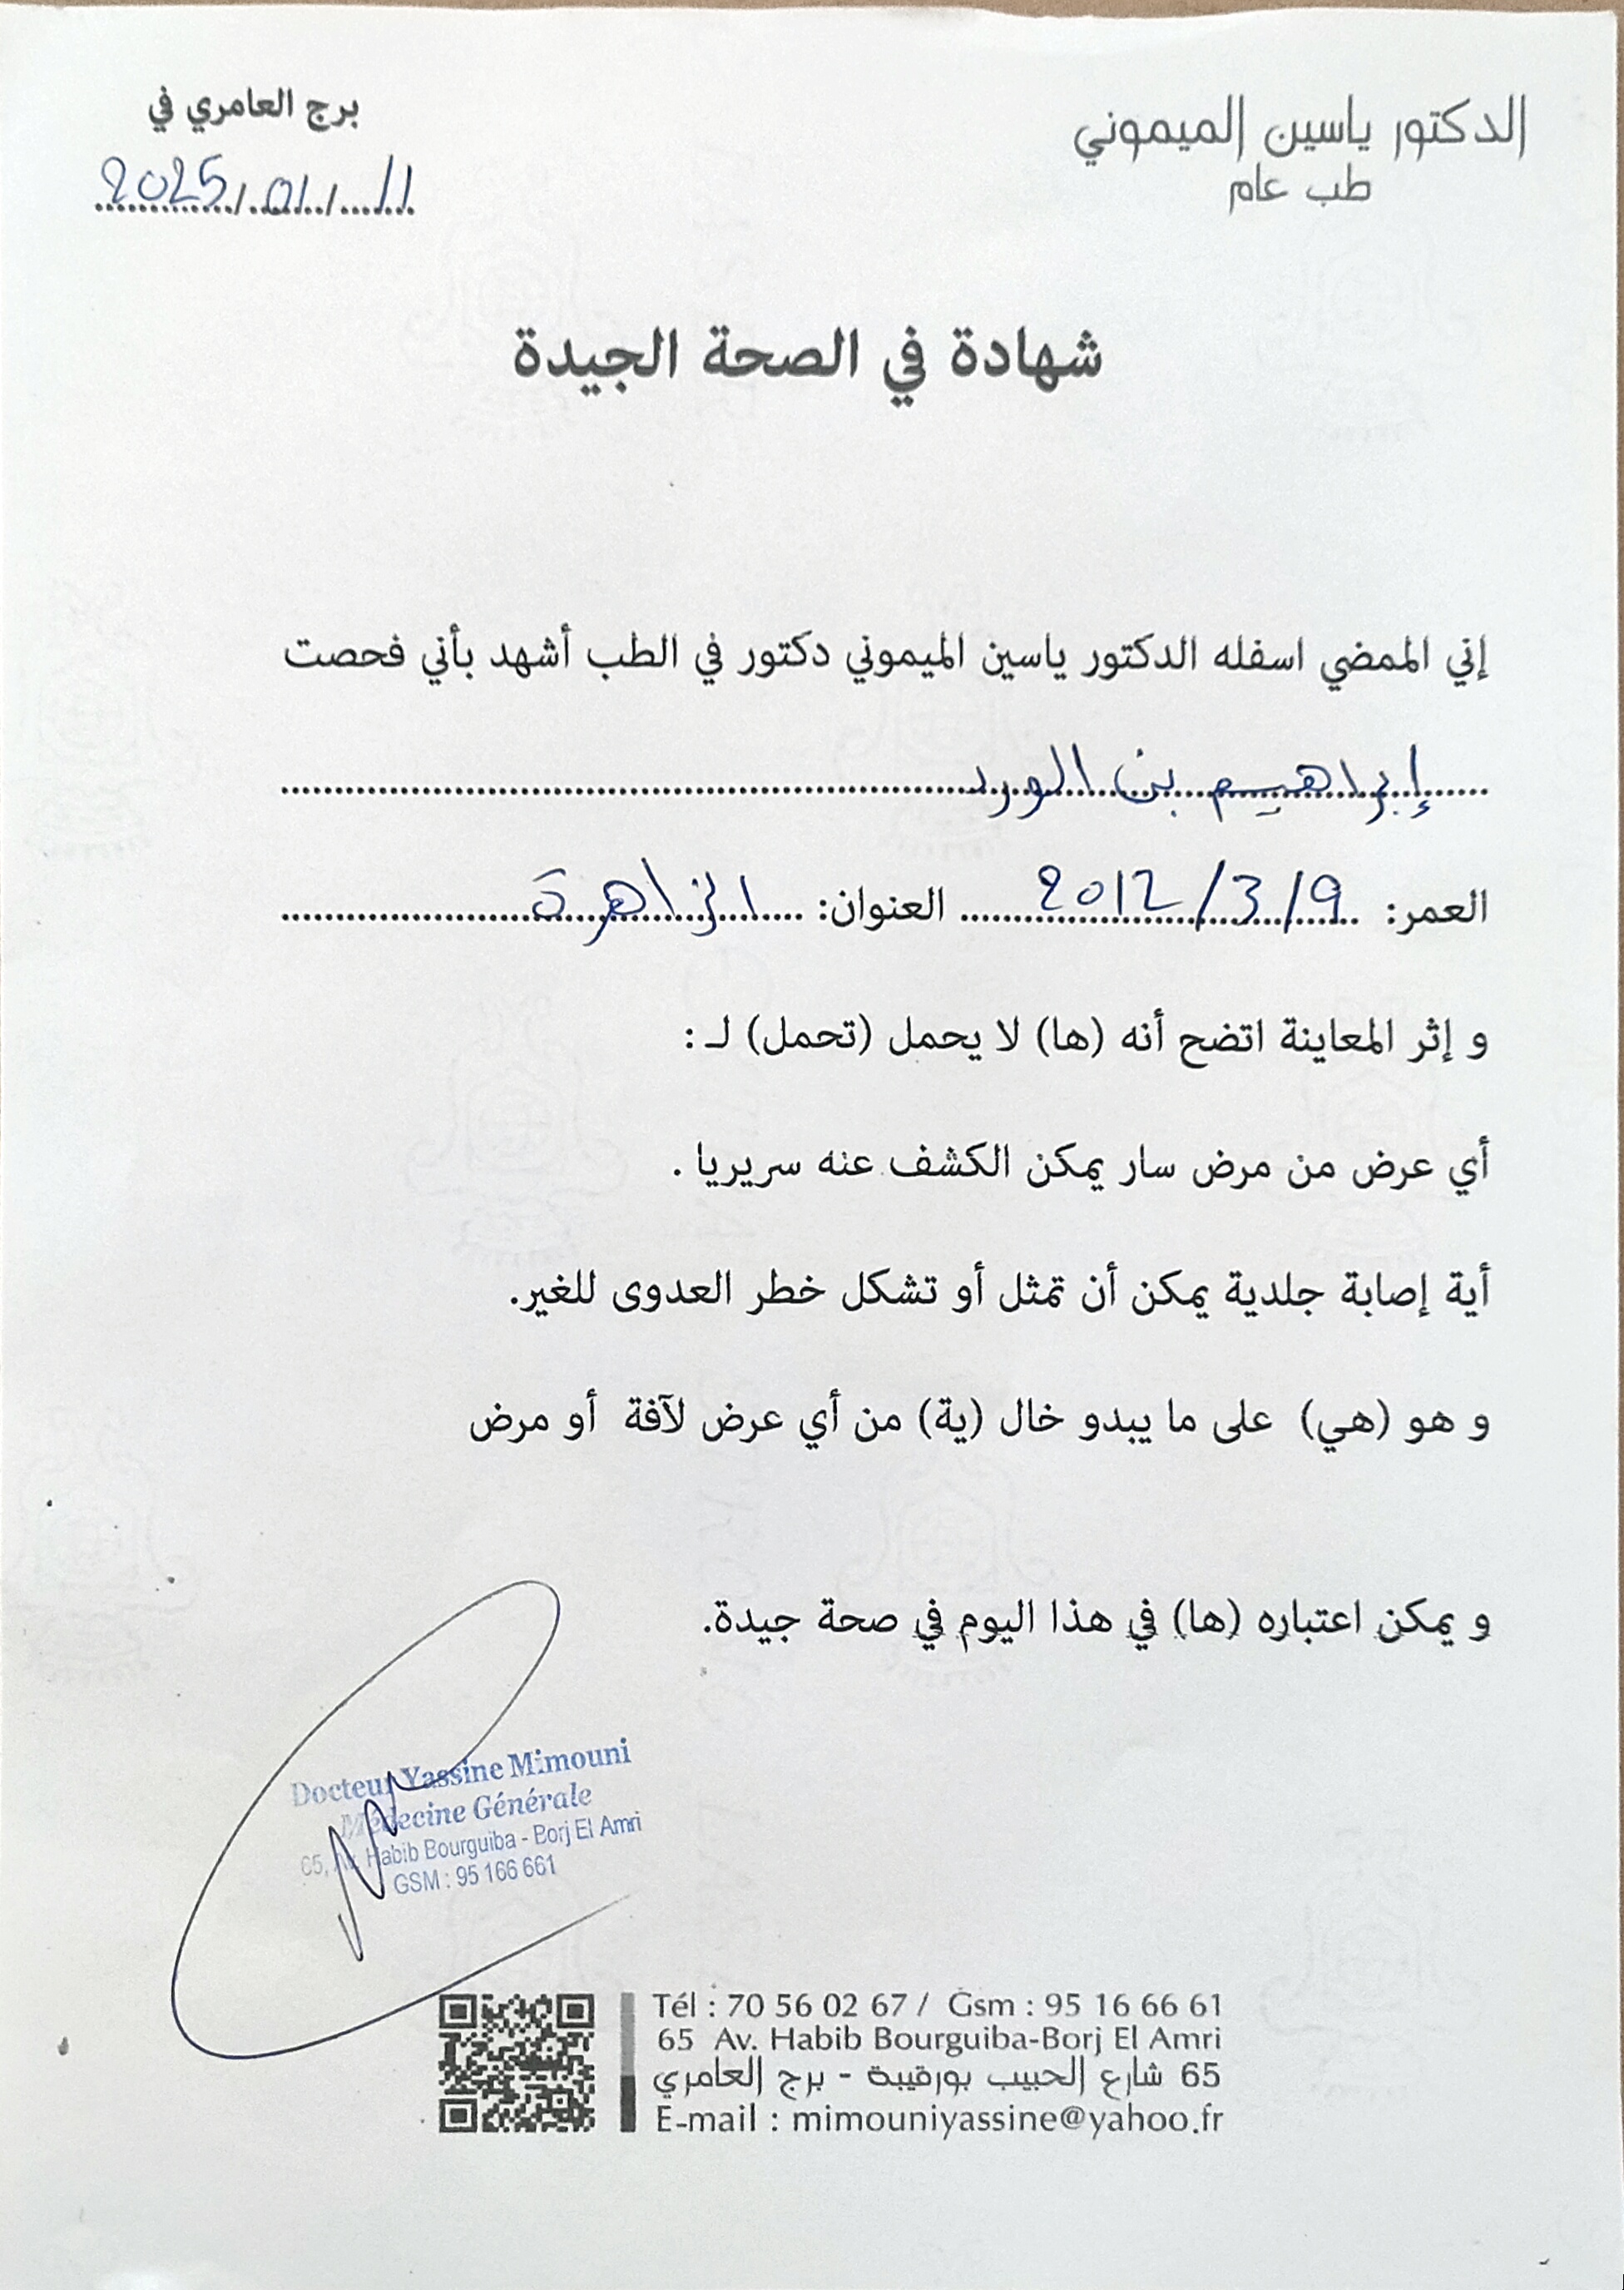 الدكتور ياسين الميموني
طب عام
برج العامري في
11/01/2025
شهادة في الصحة الجيدة
إني الممضي اسفله الدكتور ياسين الميموني دكتور في الطب أشهد بأني فحصت
إبراهيم بن الورد
العمر: 9/3/2012 العنوان: الزاهرة
و إثر المعاينة اتضح أنه (ها) لا يحمل (تحمل) لـ :
أي عرض من مرض سار يمكن الكشف عنه سريريا .
أية إصابة جلدية يمكن أن تمثل أو تشكل خطر العدوى للغير.
و هو (هي) على ما يبدو خال (ية) من أي عرض لآفة أو مرض
و يمكن اعتباره (ها) في هذا اليوم في صحة جيدة.
Docteur Yassine Mimouni
Médecine Générale
65, Av. Habib Bourguiba - Borj El Amri
GSM : 95 166 661
Tél : 70 56 02 67 / Gsm : 95 16 66 61
65 Av. Habib Bourguiba-Borj El Amri
65 شارع الحبيب بورقيبة - برج العامري
E-mail : mimouniyassine@yahoo.fr